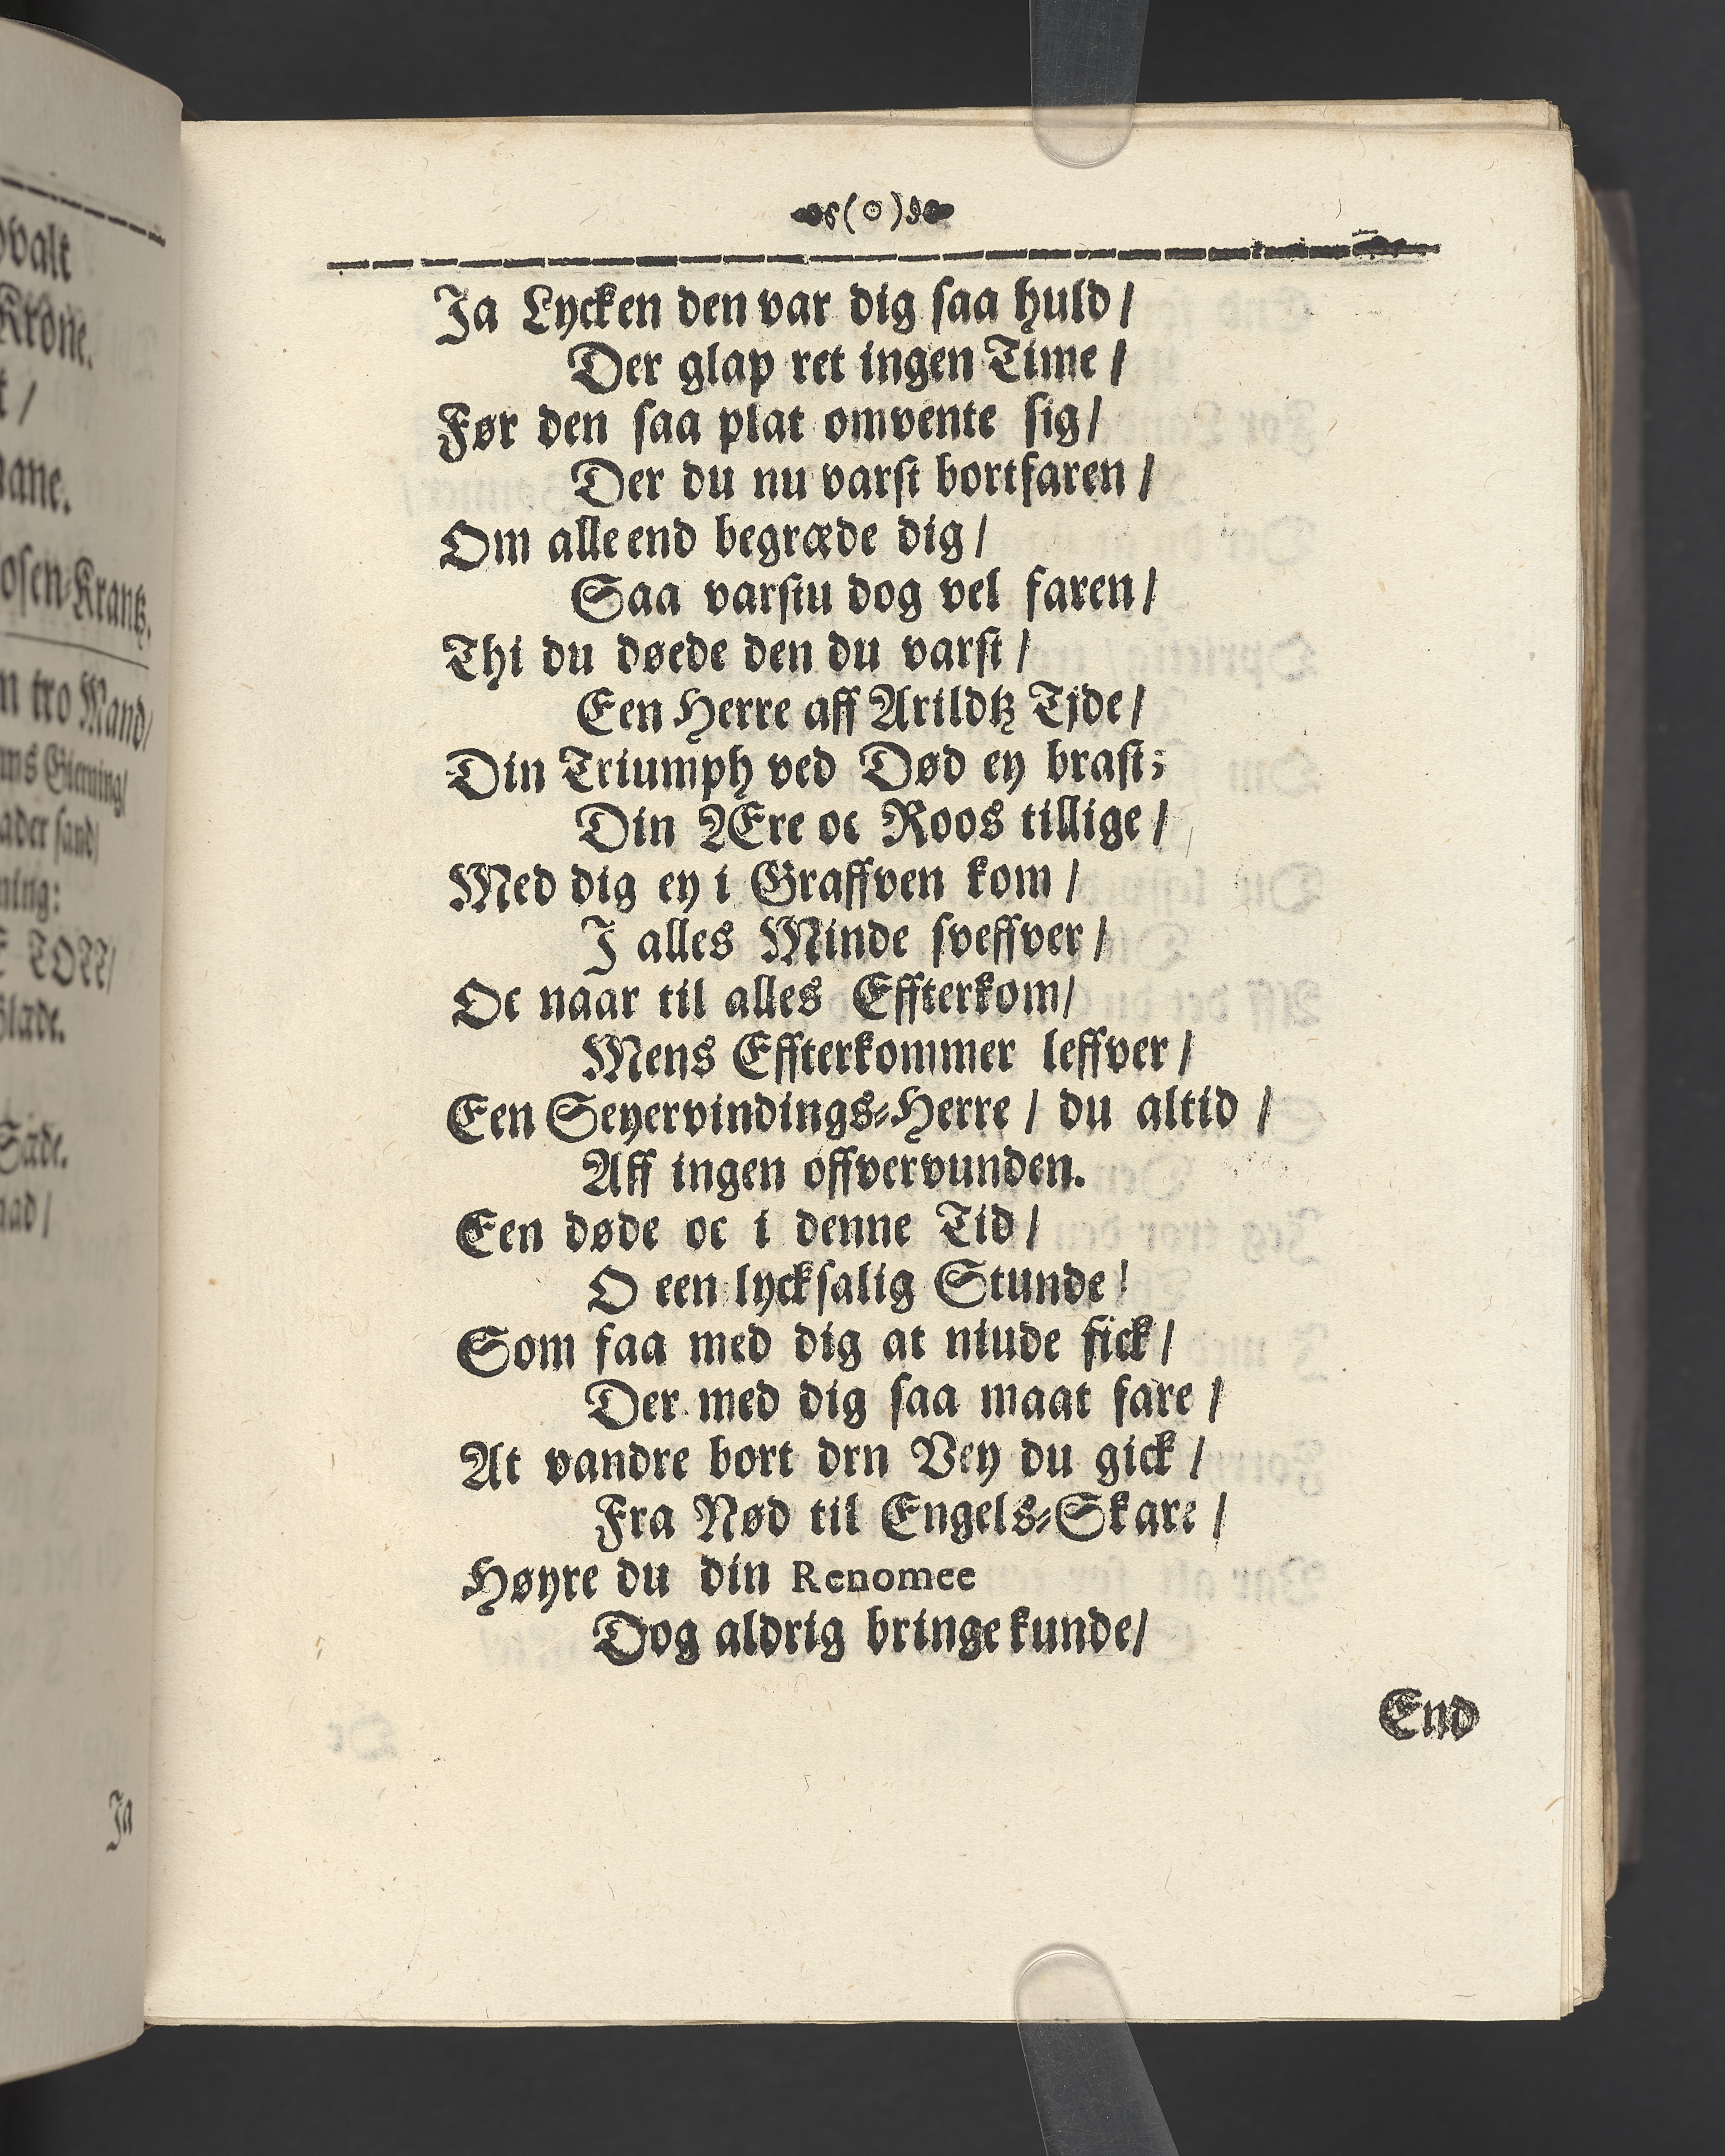 Ja Lycken den var dig saa huld /
Der glap ret ingen Time /
Før den saa plat omvente sig /
Der du nu varst bortfaren /
Om alle end begræde dig /
Saa varstu dog vel faren /
Thi du døede den du varst /
Een Herre aff Arildtz Tjde /
Din Triumph ved Død ey brast;
Din Ære oc Roos tillige /
Med dig ey i Graffven kom /
I alles Minde sveffver /
Oc naar til alles Effterkom /
Mens Effterkommer leffver /
Een Seyervindings-Herre / du altid /
Aff ingen offvervunden.
Een døde oc i denne Tid /
O een lycksalig Stunde!
Som faa med dig at niude fick /
Der med dig saa maat fare /
At vandre bort drn Vey du gick /
Fra Nød til Engels-Skare /
Høyre du din Renomee
Dog aldrig bringe kunde /
End
Krone.
osen-Krantz.
n tro Mand /
Gierning /
Ja